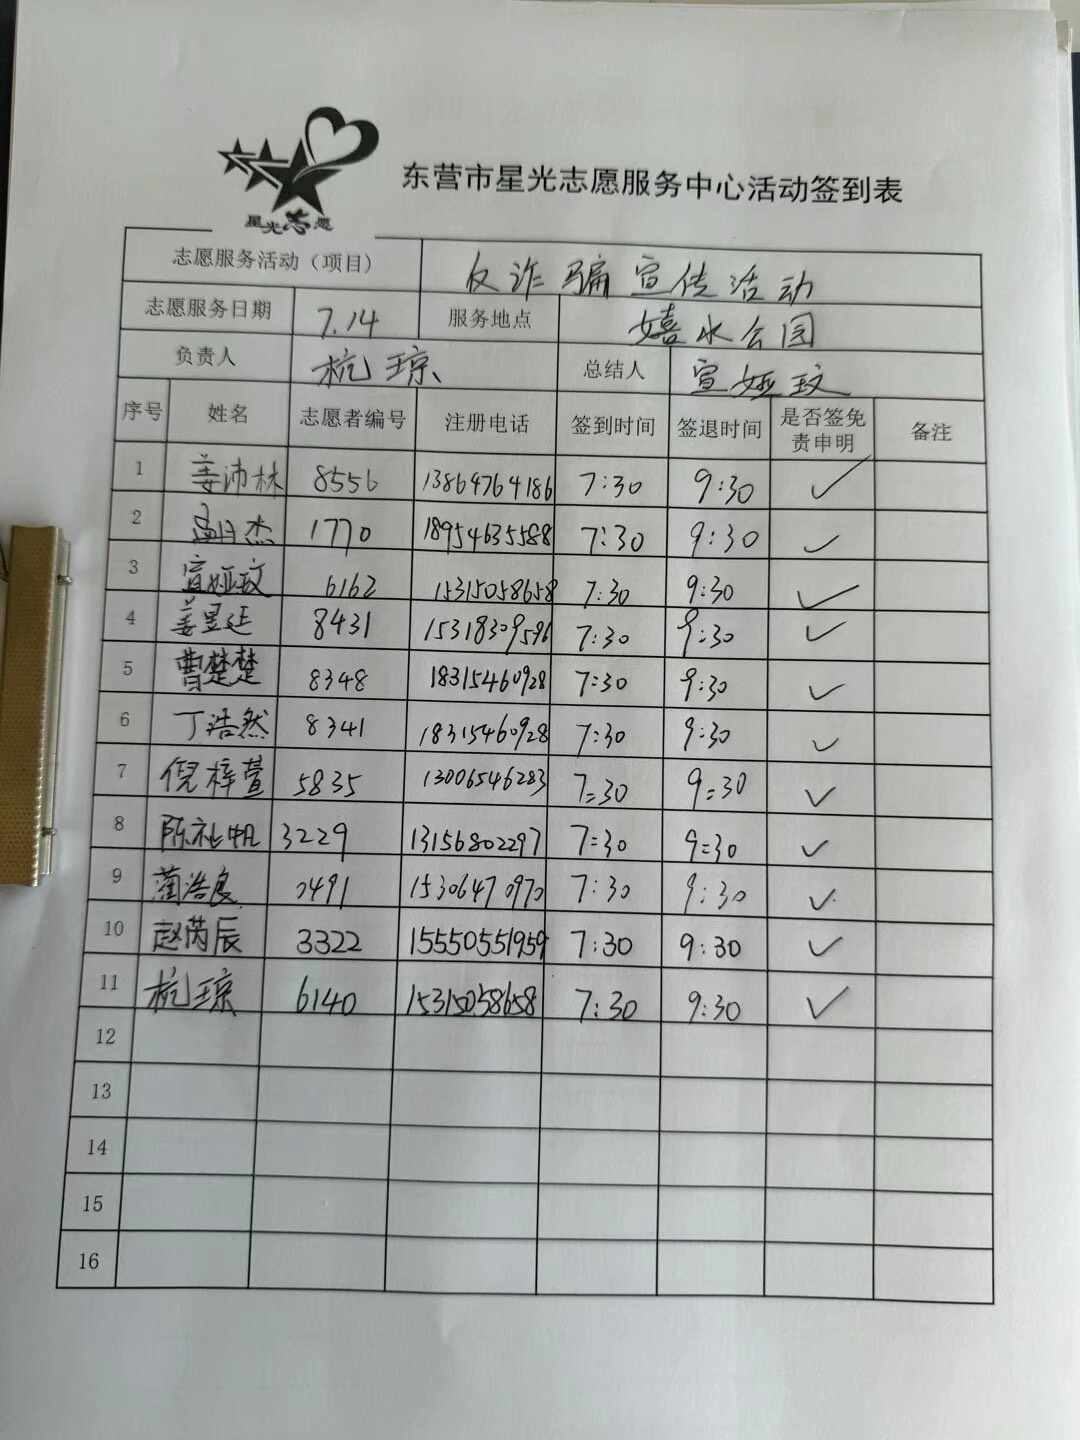 星光志愿
东营市星光志愿服务中心活动签到表
志愿服务活动（项目） 反诈骗宣传活动
志愿服务日期 7.14 服务地点 嬉水公园
负责人 杭琼 总结人 宣娅玟
序号 姓名 志愿者编号 注册电话 签到时间 签退时间 是否签免责申明 备注
1 姜沛林 8556 13864764186 7:30 9:30 ✓
2 孟日杰 1770 18954635588 7:30 9:30 ✓
3 宣娅玟 6162 15315058658 7:30 9:30 ✓
4 姜昱廷 8431 15318309596 7:30 9:30 ✓
5 曹楚楚 8348 18315460928 7:30 9:30 ✓
6 丁浩然 8341 18315460928 7:30 9:30 ✓
7 倪梓萱 5835 13006546283 7:30 9:30 ✓
8 陈祉帆 3229 13156802297 7:30 9:30 ✓
9 蔺浩良 0491 15306470970 7:30 9:30 ✓
10 赵芮辰 3322 15550551959 7:30 9:30 ✓
11 杭琼 6140 15315058658 7:30 9:30 ✓
12
13
14
15
16